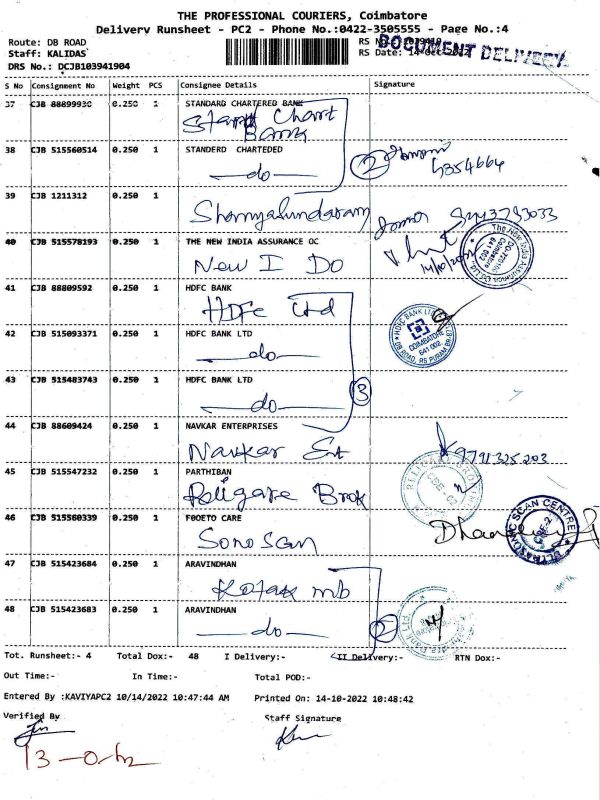 THE PROFESSIONAL COURIERS, Coimbatore
Delivery Runsheet - PC2 - Phone No.:0422-3505555 - Page No.:4
Route: DB ROAD
Staff: KALIDAS
DRS No.: DCJB103941904
RS Date: 14-Oct-2022
DOCUMENT DELIVERY
S No Consignment No Weight PCS Consignee Details Signature
37 CJB 88899930 0.250 1 STANDARD CHARTERED BANK
Stand Chart
Bank
38 CJB 515560514 0.250 1 STANDERD CHARTEDED
do 2
39 CJB 1211312 0.250 1
40 CJB 515578193 0.250 1 THE NEW INDIA ASSURANCE OC
New I Do 14/10/2022
41 CJB 88809592 0.250 1 HDFC BANK
HDFC Ltd
HDFC BANK LTD
COIMBATORE
641 002
DB ROAD, RS PURAM BR
42 CJB 515093371 0.250 1 HDFC BANK LTD
do
43 CJB 515483743 0.250 1 HDFC BANK LTD
do 3
44 CJB 88609424 0.250 1 NAVKAR ENTERPRISES
Navkar Ent 9791325203
45 CJB 515547232 0.250 1 PARTHIBAN
Religare Brok
46 CJB 515560339 0.250 1 FOOETO CARE
Sonoscan
SCAN CENTRE
47 CJB 515423684 0.250 1 ARAVINDHAN
Kotak mb
48 CJB 515423683 0.250 1 ARAVINDHAN
do 2
Tot. Runsheet:- 4 Total Dox:- 48 I Delivery:- II Delivery:- RTN Dox:-
Out Time:- In Time:- Total POD:-
Entered By :KAVIYAPC2 10/14/2022 10:47:44 AM Printed On: 14-10-2022 10:48:42
Verified By Staff Signature